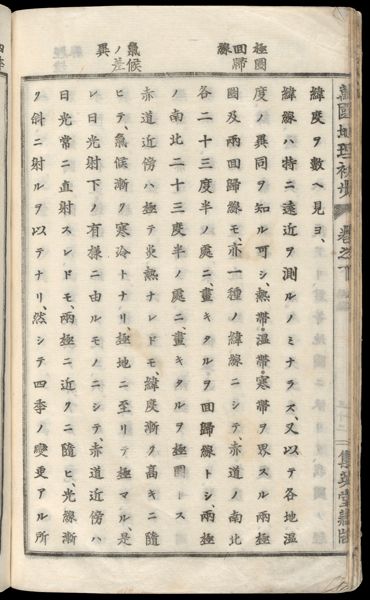 萬國地理初步 卷之下 集英堂藏版
極圈
回歸
線
氣候
ノ差
異
緯度ヲ數ヘ見ヨ、
緯線ハ特ニ遠近ヲ測ルノミナラス、又以テ各地溫
度ノ異同ヲ知ル可シ、熱帶・溫帶・寒帶ヲ界スル兩極
圈及兩回歸線モ、亦一種ノ緯線ニシテ、赤道ノ南北
各二十三度半ノ處ニ、畫キタルヲ回歸線トシ、兩極
ノ南北二十三度半ノ處ニ、畫キタルヲ極圈トス
赤道近傍ハ極テ炎熱ナレドモ、緯度漸ク高キニ隨
ヒテ、氣候漸ク寒冷トナリ、極地ニ至リテ極マル、是
レ日光射下ノ有樣ニ由ルモノニシテ、赤道近傍ハ
日光常ニ直射スレドモ、兩極ニ近クニ隨ヒ、光線漸
ク斜ニ射ルヲ以テナリ、然シテ四季ノ變更アル所